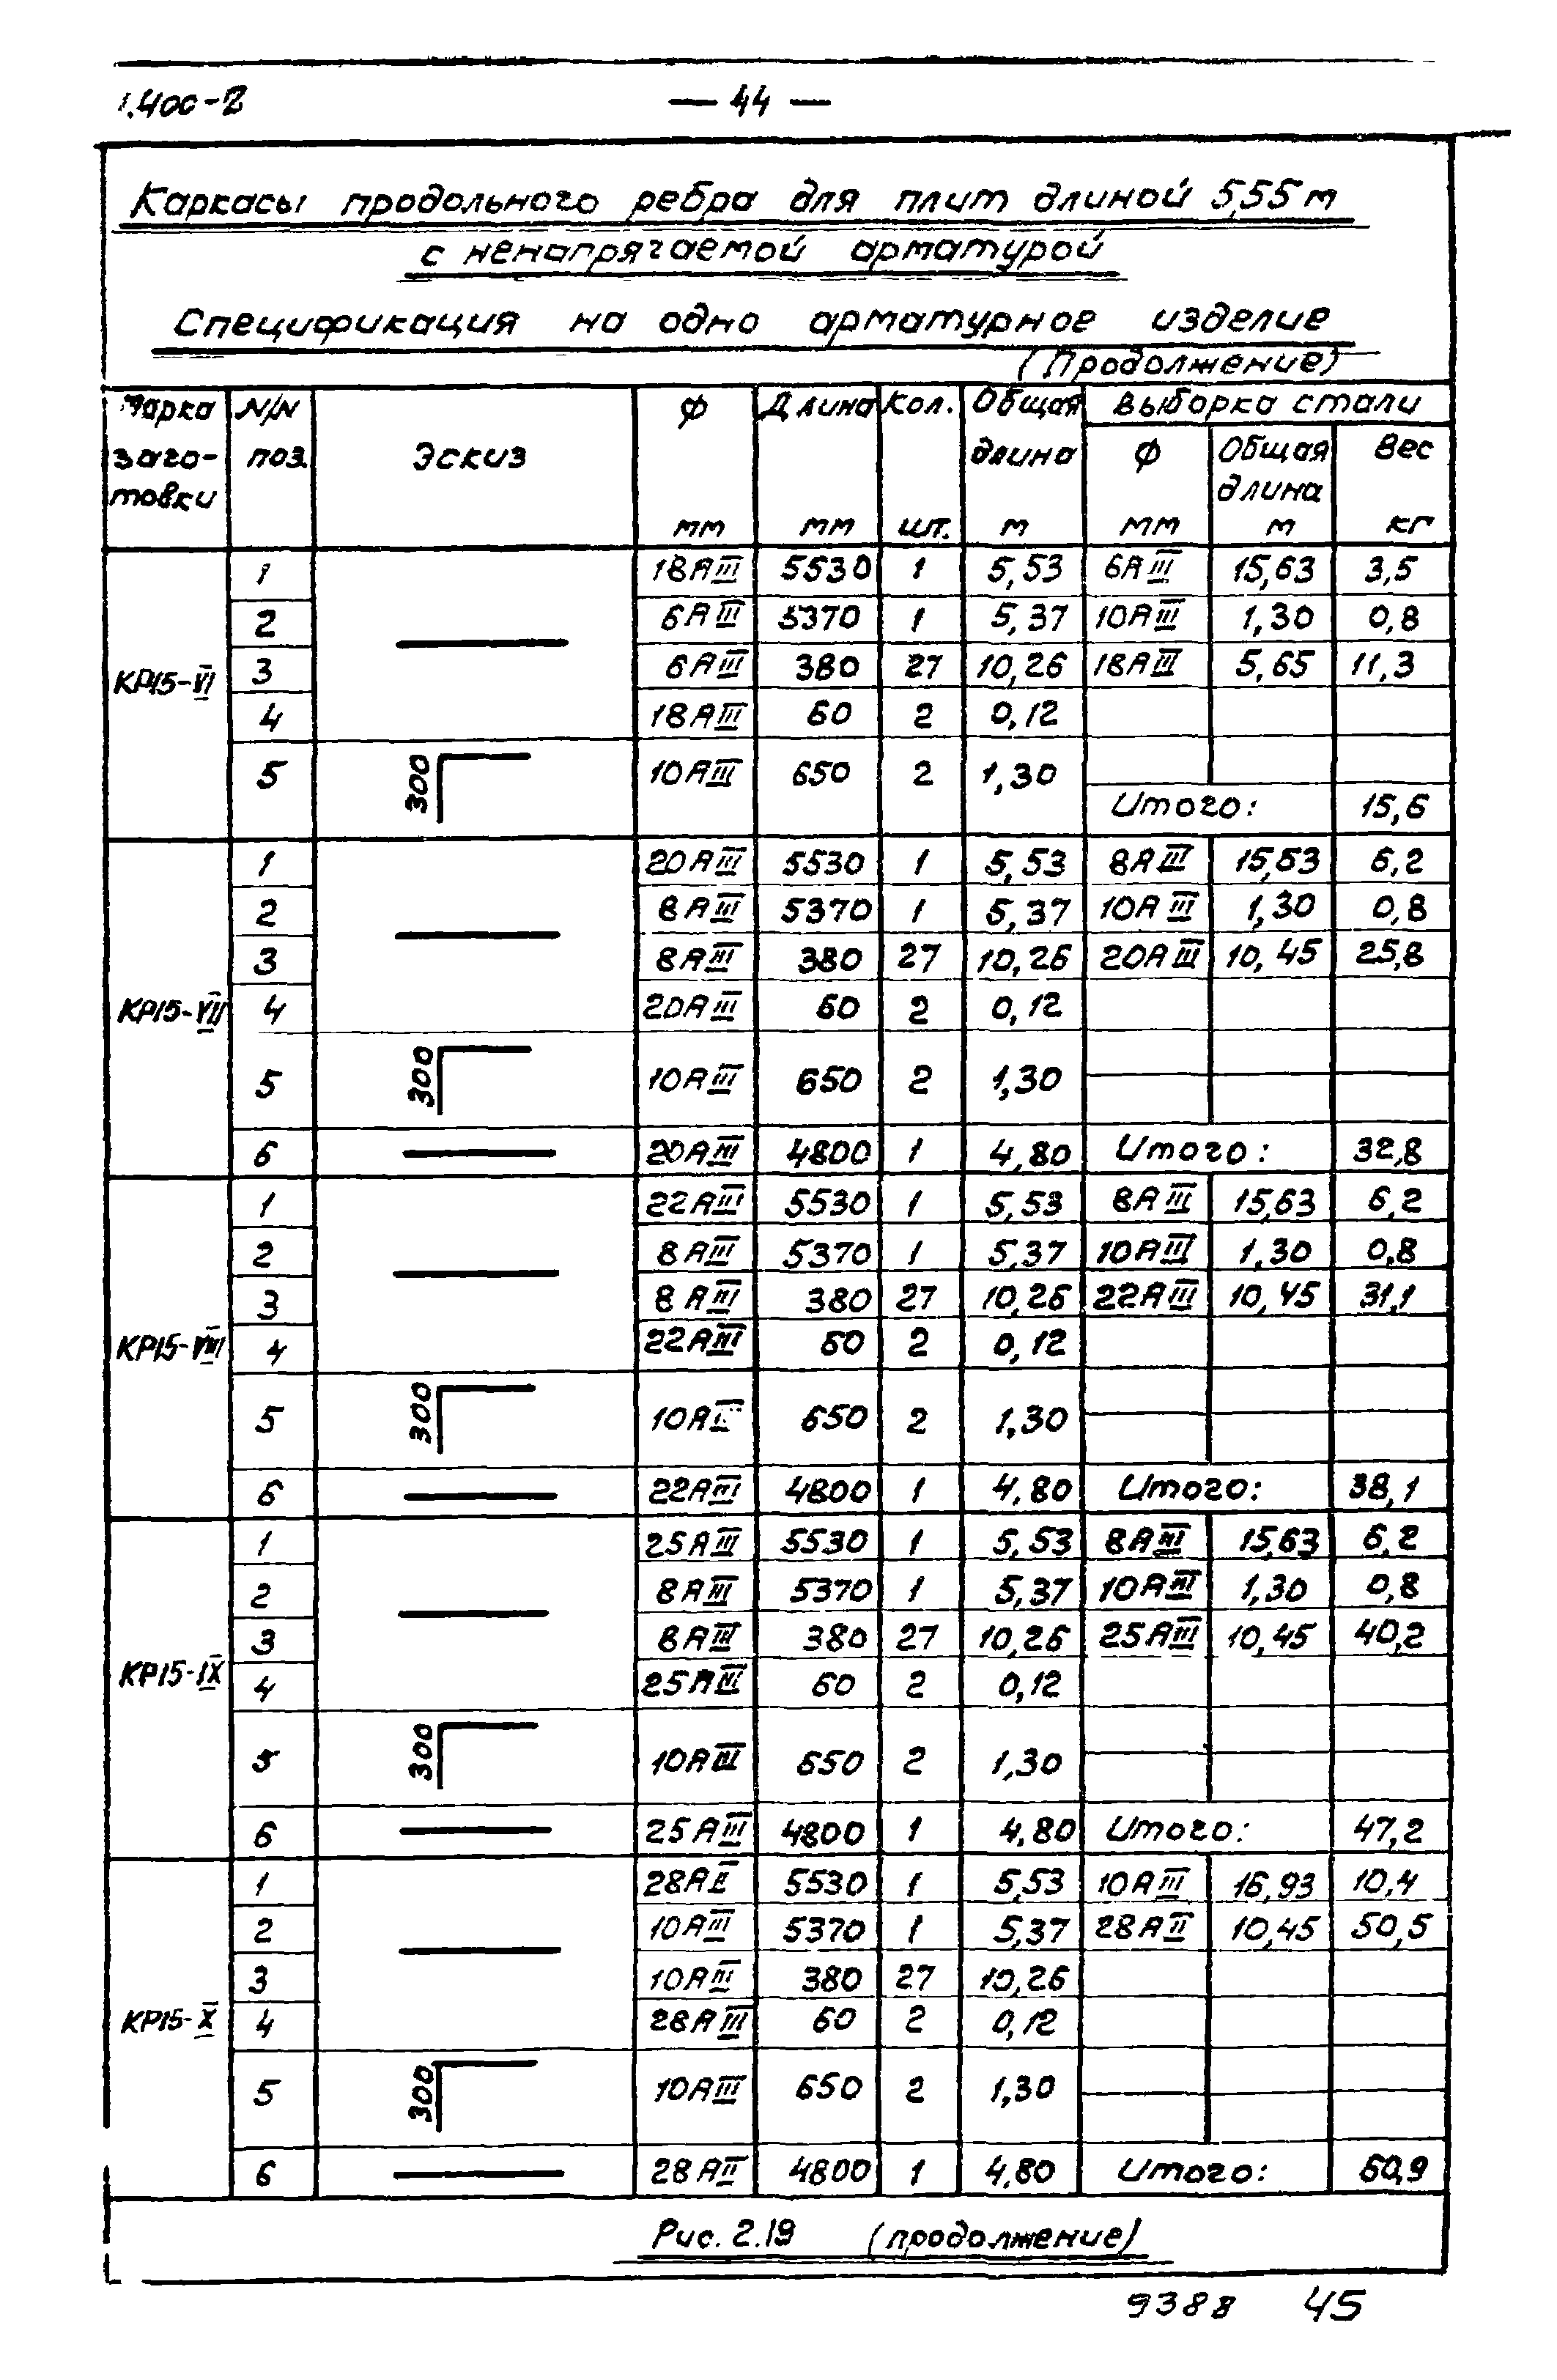 1.400-2
— 44 —
Каркасы продольного ребра для плит длиной 5,55 м
с ненапрягаемой арматурой
Спецификация на одно арматурное изделие
(Продолжение)
Марка заготовки N/N поз. Эскиз Ф мм Длина мм Кол. шт. Общая длина м Выборка стали
Ф мм Общая длина м Вес кг
КР15-VI
1 18АIII 5530 1 5,53 6АIII 15,63 3,5
2 6АIII 5370 1 5,37 10АIII 1,30 0,8
3 6АIII 380 27 10,26 18АIII 5,65 11,3
4 18АIII 60 2 0,12
5 300 10АIII 650 2 1,30
Итого: 15,6
КР15-VII
1 20АIII 5530 1 5,53 8АIII 15,63 6,2
2 8АIII 5370 1 5,37 10АIII 1,30 0,8
3 8АIII 380 27 10,26 20АIII 10,45 25,8
4 20АIII 60 2 0,12
5 300 10АIII 650 2 1,30
6 20АIII 4800 1 4,80 Итого: 32,8
КР15-VIII
1 22АIII 5530 1 5,53 8АIII 15,63 6,2
2 8АIII 5370 1 5,37 10АIII 1,30 0,8
3 8АIII 380 27 10,26 22АIII 10,45 31,1
4 22АIII 60 2 0,12
5 300 10АIII 650 2 1,30
6 22АIII 4800 1 4,80 Итого: 38,1
КР15-IX
1 25АIII 5530 1 5,53 8АIII 15,63 6,2
2 8АIII 5370 1 5,37 10АIII 1,30 0,8
3 8АIII 380 27 10,26 25АIII 10,45 40,2
4 25АIII 60 2 0,12
5 300 10АIII 650 2 1,30
6 25АIII 4800 1 4,80 Итого: 47,2
КР15-X
1 28АII 5530 1 5,53 10АIII 16,93 10,4
2 10АIII 5370 1 5,37 28АII 10,45 50,5
3 10АIII 380 27 10,26
4 28АIII 60 2 0,12
5 300 10АIII 650 2 1,30
6 28АII 4800 1 4,80 Итого: 60,9
Рис. 2.19 (продолжение)
9388 45